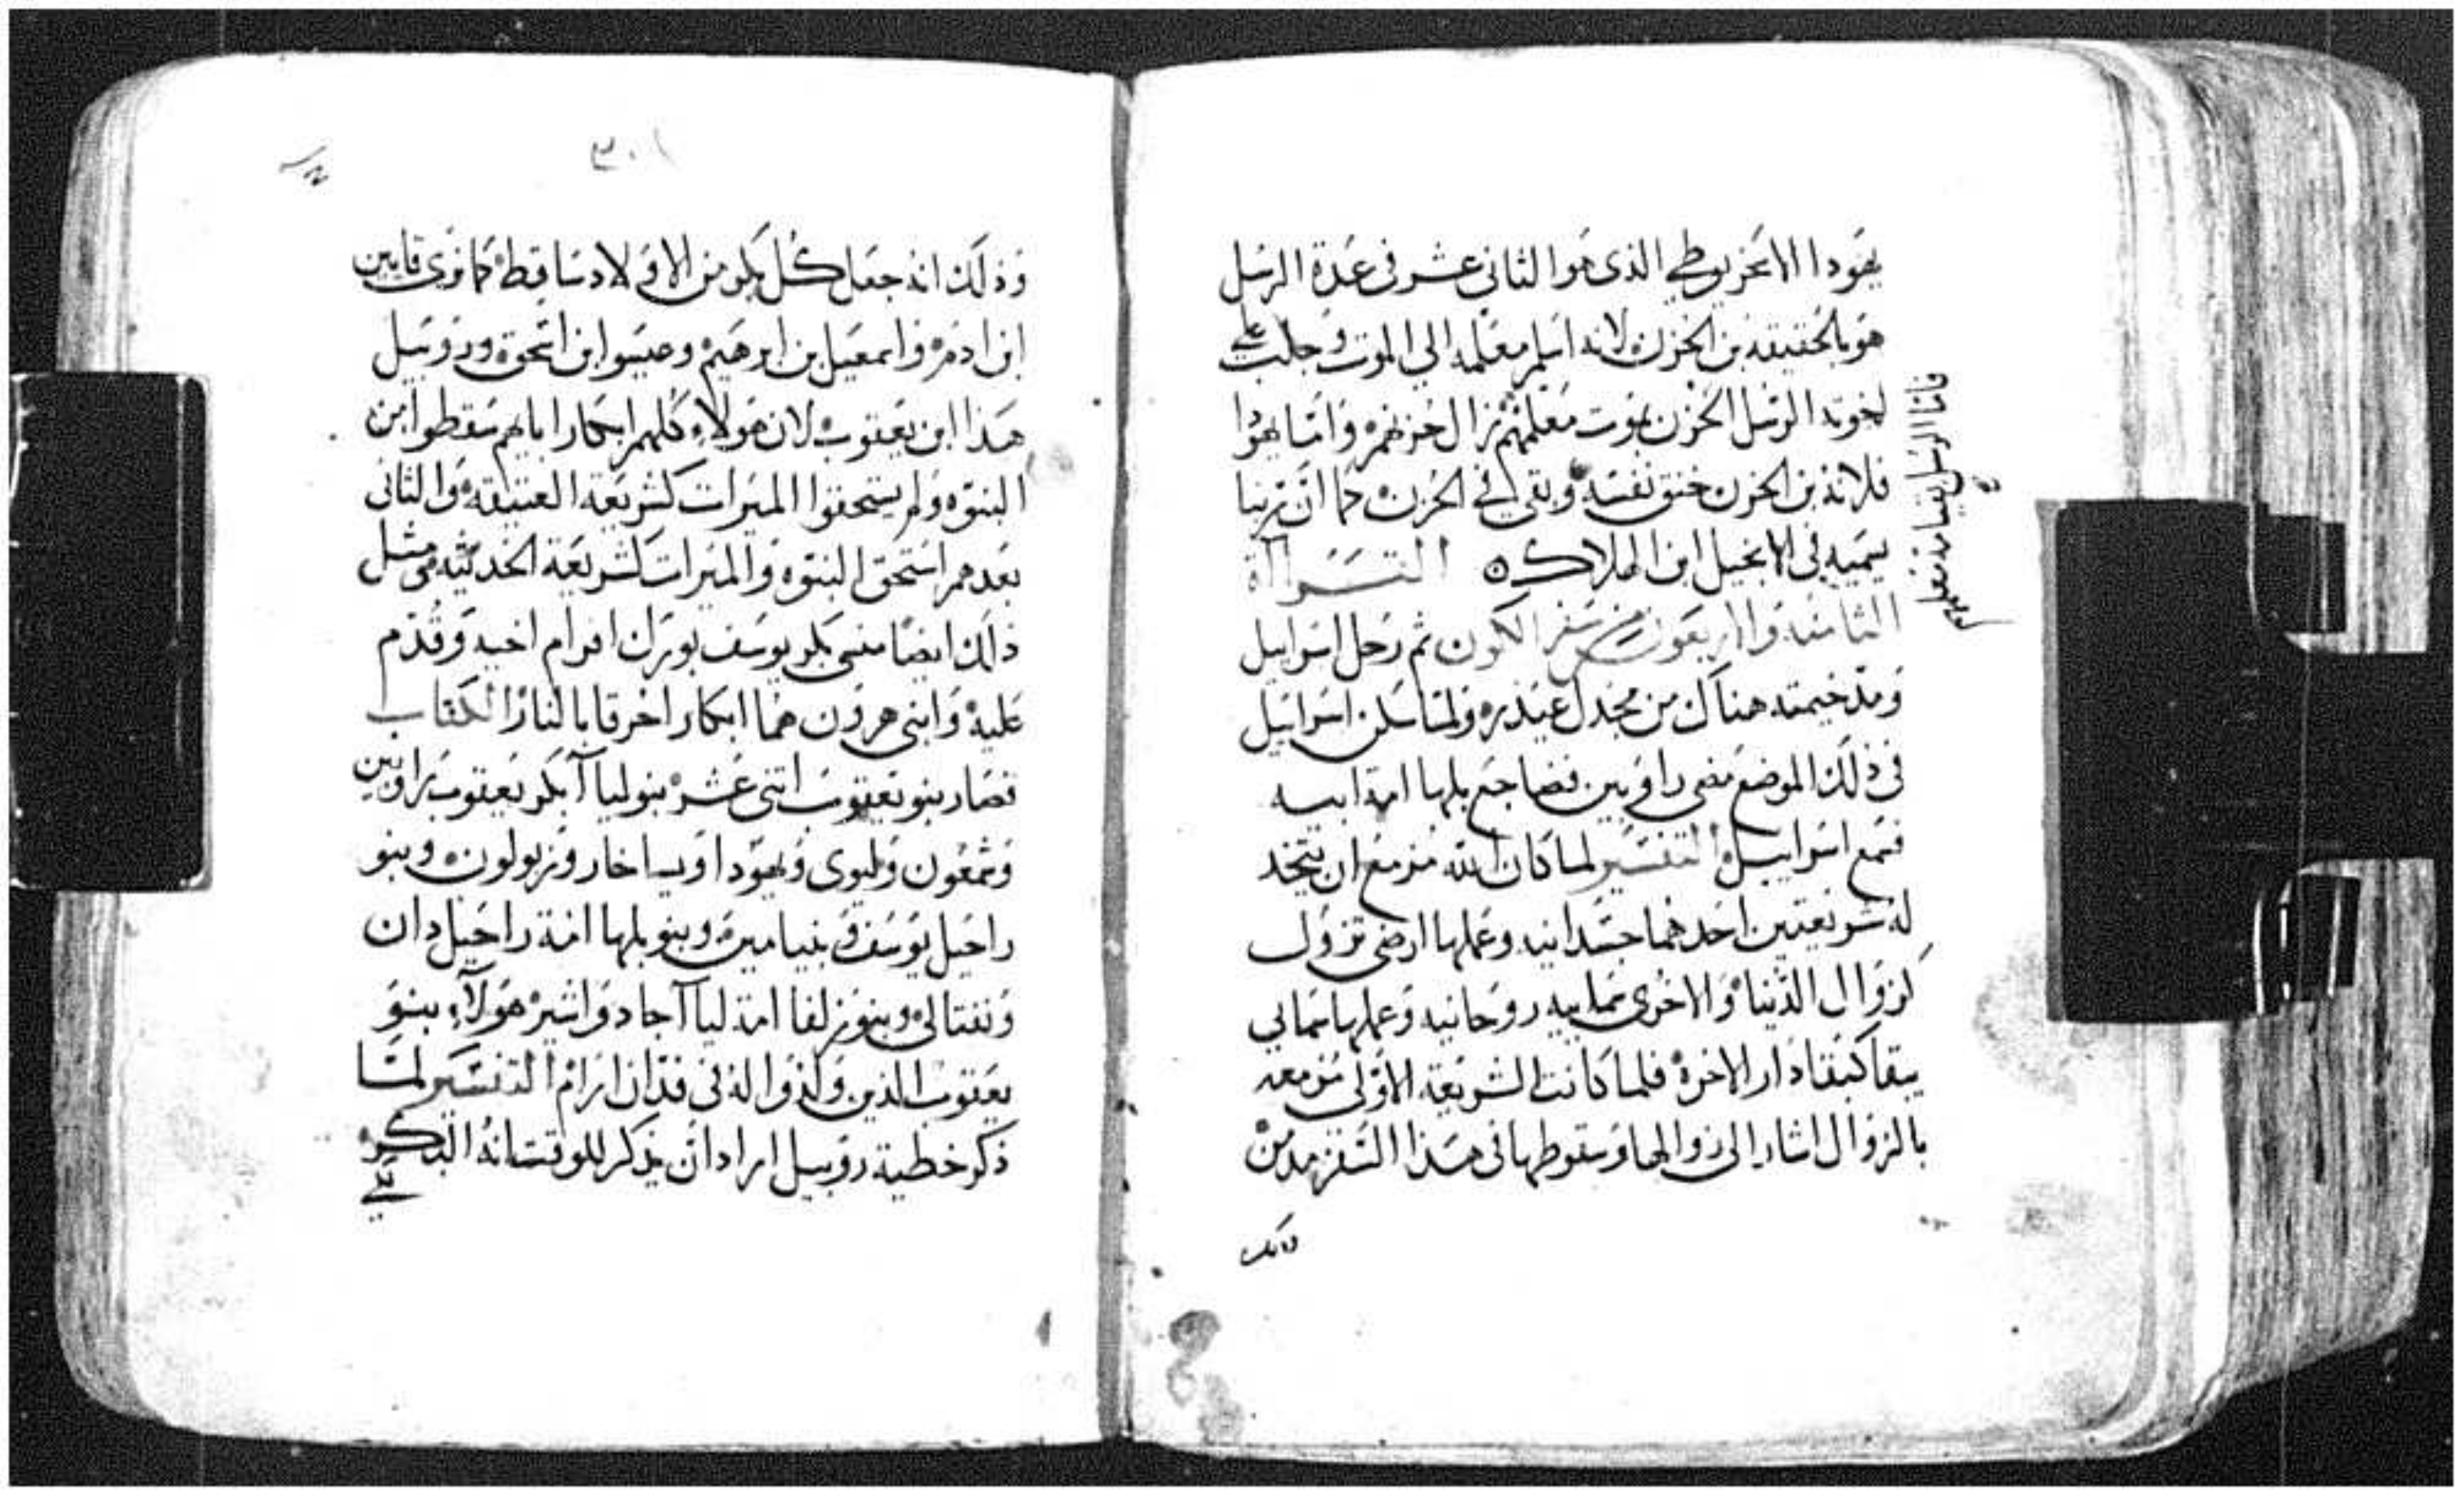 يهودا الاسخريوطي الذى هو الثانى عشر فى عدة الرسل
هو بالحقيقه بن الحزن لانه اسلم معلمه الي الموت وجلب علي
اخوته الرسل الحزن بموت معلمهم زال حزنهم واما يهودا
فلانه بن الحزن خنق نفسه وبقي في الحزن كما ان ربنا
يسميه فى الانجيل ابن الهلاك ٥ القراآة
الثامنه والاربعون من سفر الكون ثم رحل اسراييل
ومد خيمته هناك من مجدل عيذره ولما سكن اسراييل
فى ذلك الموضع مضى راوبين فضاجع بلها امة ابيه
فسمع اسراييل التفسير لما كان الله مزمع ان يتخد
له شريعتين احدهما جسدانيه وعملها ارضى تزول
كزوال الدنيا والاخرى سماييه روحانيه وعملها سمايي
يبقا كبقا دار الاخرة فلما كانت الشريعة الاولى مزمعه
بالزوال اشار الى زوالها وسقوطها فى هذا السفر مدمن
فاما الرسل بقيامة معلمهم
٣٠١
وذلك انه جعل كل بكر من الاولاد ساقط كما نرى قايين
ابن ادم واسمعيل بن ابرهيم وعيسو ابن اسحق وروبيل
هذا ابن يعقوب لان هولاء كلهم ابكار اباهم سقطوا من
البنوه ولم يستحقوا الميرات كشريعة العتيقه والثانى
بعدهم استحق البنوه والميرات كشريعة الحديثه مثل
ذلك ايضا منسى بكر يوسف بورك افرام اخيه وقدم
عليه وابنى هرون هما ابكار احرقا بالنار الكتاب
فصار بنو يعقوب اتنى عشر بنو ليا آ بكر يعقوب راوبين
وشمعون وليوى ويهودا ويساخار وزبولون وبنو
راحيل يوسف وبنيامين وبنو بلها امة راحيل دان
ونفتالى وبنو زلفا امة ليا آ جاد واشير هولآء بنو
يعقوب الذين ولدوا له فى فدان ارام التفسير لما
ذكر خطية روبيل اراد ان يذكر للوقت انه البكر